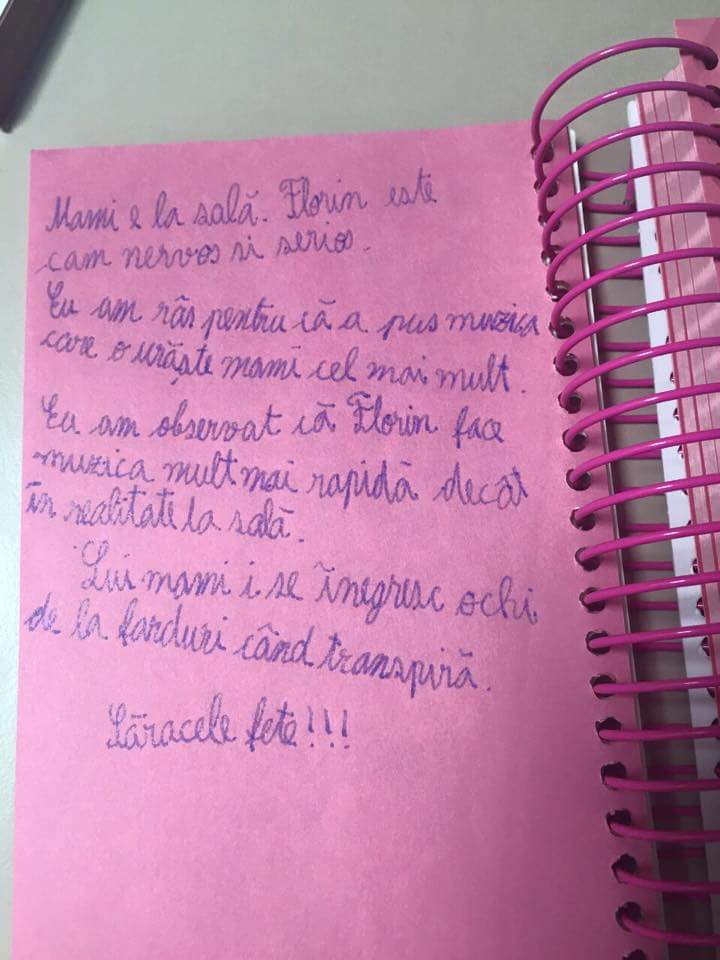 Mami e la sală. Florin este
cam nervos si serios.
Eu am râs pentru că a pus muzica
care o urăște mami cel mai mult.
Eu am observat că Florin face
muzica mult mai rapidă decât
în realitate la sală.
Lui mami i se înegresc ochi
de la farduri când transpiră.
Săracele fete!!!